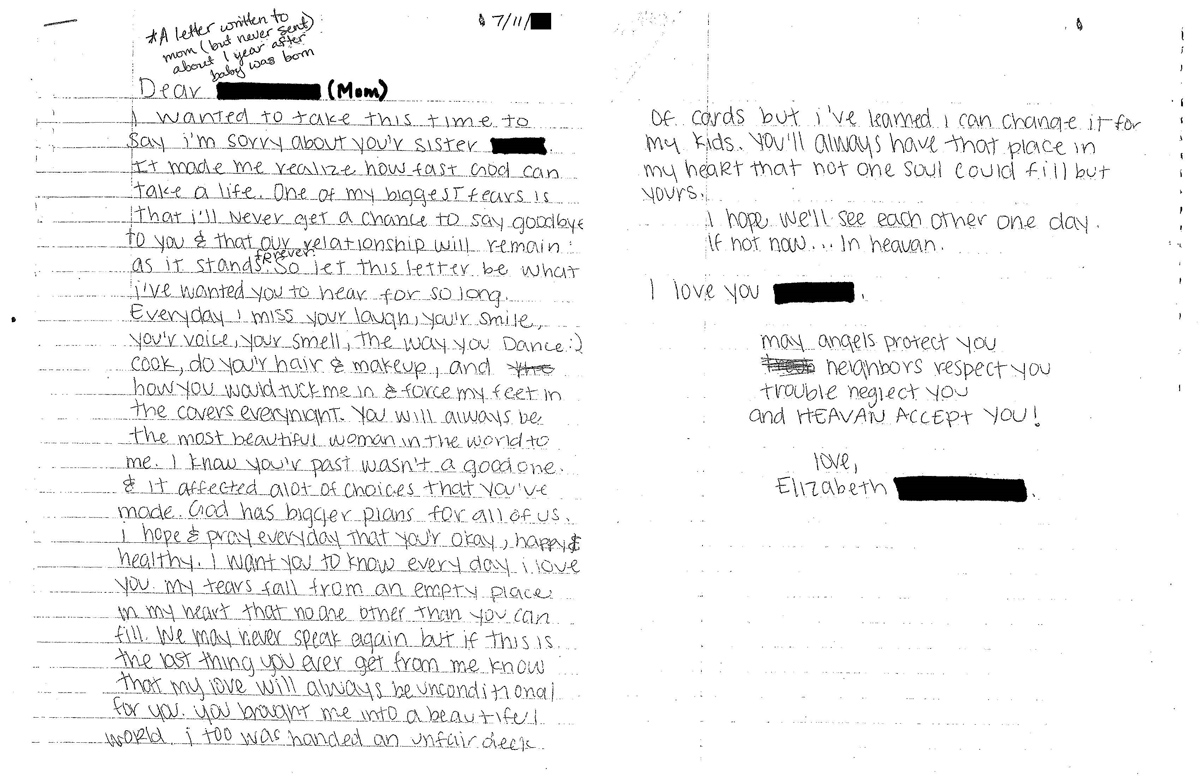 *A letter written to
mom (but never sent)
about 1 year after
baby was born
7/11/
Dear (Mom)
I wanted to take this time to
Say i'm sorry about you'r sister
It made me realize how fast God can
take a life. One of my biggest fears is
that i'll never get a chance to say goodbye
to you & that our relationship will remain
as it stands forever. So let this letter be what
i've wanted you to hear for so long.
Everyday I miss your laugh, you'r smile,
you'r voice, your smell, the way you Dance :)
cook, do you'r hair & makeup, and
how you would tuck me in & force my feet in
the covers everynight. You will always be
the most beautiful woman in the world to
me. I know you'r past wasn't a good one.
& it affected alot of choices that you've
made. God has bigger plans for all of us.
I hope & pray everyday that you'r okay, happy &
healthy. I want you to know every day i love
you. my tears fall from an empty place
in my heart that no one other than you can
fill. We may never speak again but if this is
the last thing you ever get from me know
that my love will always be unconditional
for you. you brought me into a beautiful
world. i too was handed an unfair deck
Of cards but i've learned I can change it for
my kids. You'll always have that place in
my heart that not one soul could fill but
yours.
I hope we'll see each other one day.
If not now... In heavan.
I love you .
may angels protect you
neighbors respect you
trouble neglect you
and HEAVAN ACCEPT YOU!
love,
Elizabeth